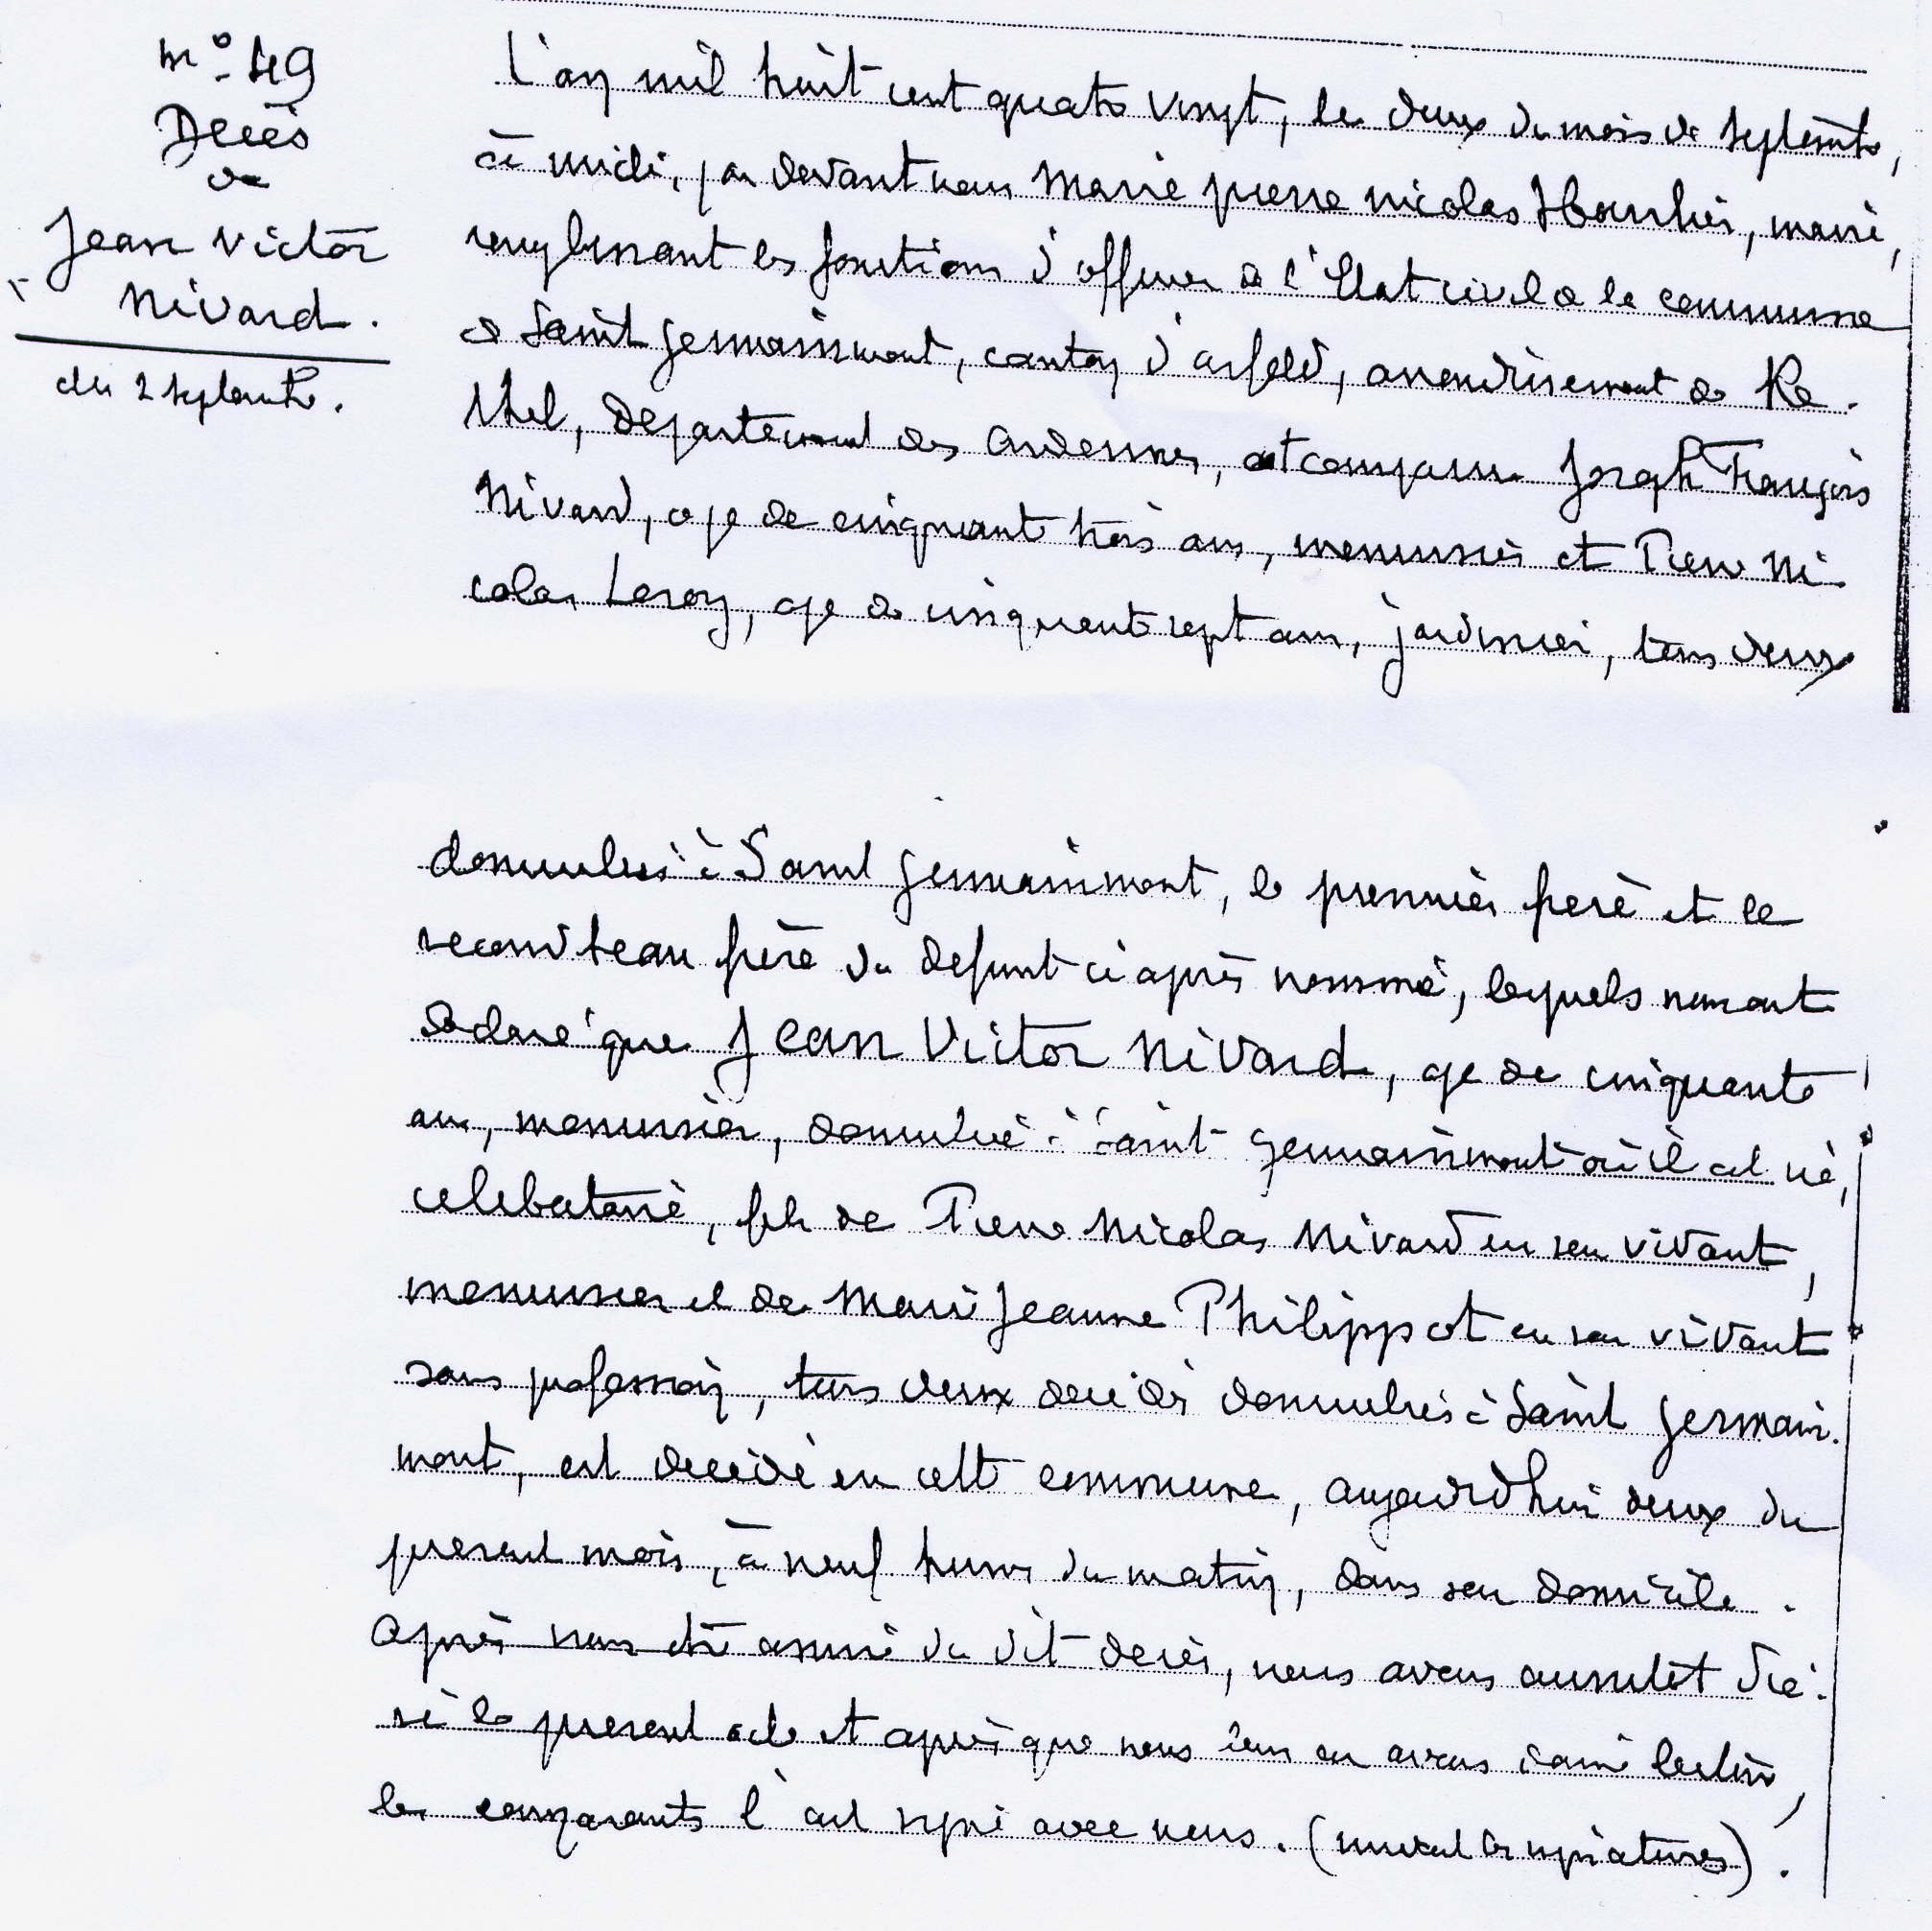 n° 49
Décès
de
Jean Victor
Nivard.
du 2 septembre.
L'an mil huit cent quatre vingt, le deux du mois de septembre,
à midi, par devant nous Marie Pierre Nicolas, maire,
remplissant les fonctions d'officier de l'Etat civil de la commune
de Saint Germainmont, canton d'asfeld, arrondissement de Re-
thel, département des Ardennes, ont comparu Joseph François
Nivard, agé de cinquante trois ans, menuisier et Pierre Ni-
colas Leroy, agé de cinquante sept ans, jardinier, tous deux
domiciliés à Saint Germainmont, le premier frère et le
second beau frère du défunt ci après nommé, lesquels nous ont
déclaré que Jean Victor Nivard, agé de cinquante
ans, menuisier, domicilié à Saint Germainmont où il est né,
célibataire, fils de Pierre Nicolas Nivard en son vivant,
menuisier et de Marie Jeanne Philippot en son vivant
sans profession, tous deux décédés domiciliés à Saint Germain-
mont, est décédé en cette commune, aujourd'hui deux du
présent mois, à neuf heures du matin, dans son domicile.
Après nous être assuré du dit décès, nous avons aussitôt dres-
sé le présent acte et après que nous leur en avons donné lecture,
les comparants l'ont signé avec nous. (suivent les signatures).